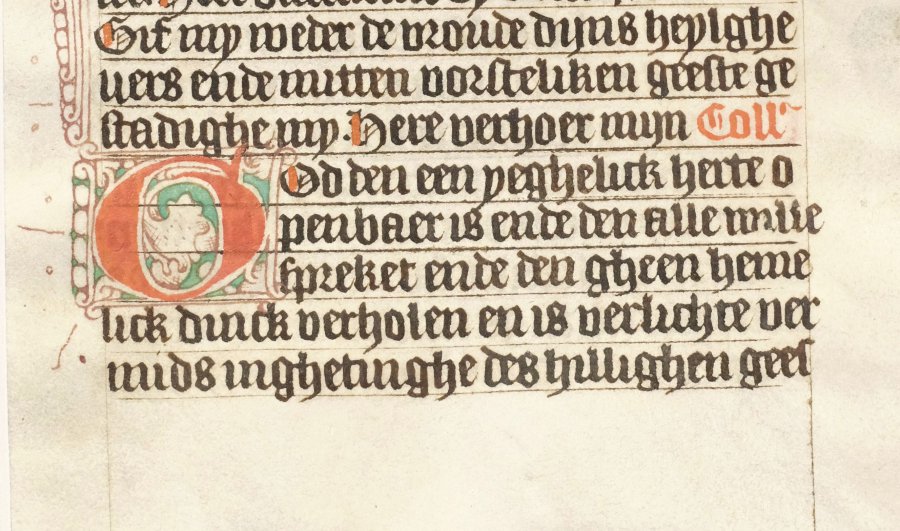 Gif my weder de vroude dijns heylighe
vers ende mitten vorsteliken geeste ge
stadighe my. Here verhoer mijn Coll'
God den een yeghelick herte o
penbaer is ende den alle wille
spreket ende den gheen heme
lick dinck verholen en is verlichte ver
mids inghetinghe des hillighen gees